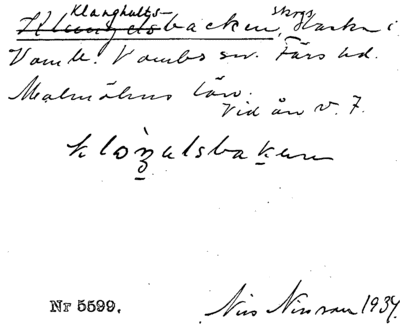 Klanghults- skogs
Klungelsbacken, backe i
Vomb. Vombs sn. Färs hd.
Malmöhus län.
Vid ån v. 7.
klòŋulsbaken
Nr 5599.
Nils Nilsson 1937.